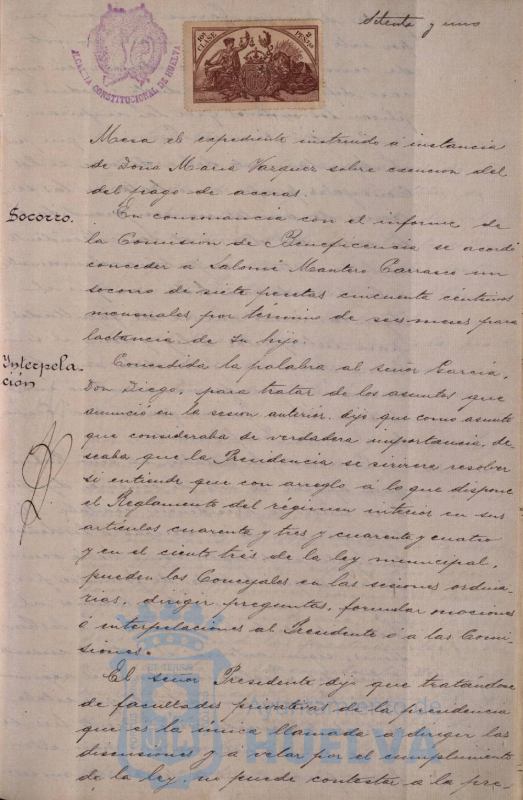 Setenta y uno
ALCALDIA CONSTITUCIONAL DE HUELVA
10ª CLASE
2 PESETAS
Mesa el expediente instruido á instancia
de Doña Maria Vazquez sobre esencion del
del pago de aceras.
Socorro.
En consonancia con el informe de
la Comision de Beneficencia se acordó
conceder á Salomé Mantero Carrasco un
socorro de siete pesetas cincuenta céntimos
mensuales por término de seis meses para
lactancia de su hijo.
Interpela-
ción
Concedida la palabra al señor Garcia,
Don Diego, para tratar de los asuntos que
anunció en la sesion anterior, dijo que como asunto
que consideraba de verdadera importancia, de-
seaba que la Presidencia se sirviera resolver
si entiende que con arreglo á lo que dispone
el Reglamento del régimen interior en sus
articulos cuarenta y tres y cuarenta y cuatro
y en el ciento trés de la ley municipal,
pueden los Concejales en las sesiones ordina-
rias, dirigir preguntas, formular mociones
ó interpelaciones al Presidente ó a las Comi-
siones.
El señor Presidente dijo que tratándose
de facultades privativas de la presidencia
que es la única llamada á dirigir las
discusiones y á velar por el cumplimiento
de la ley, no puede contestar á la pre-
Ayuntamiento de
HUELVA